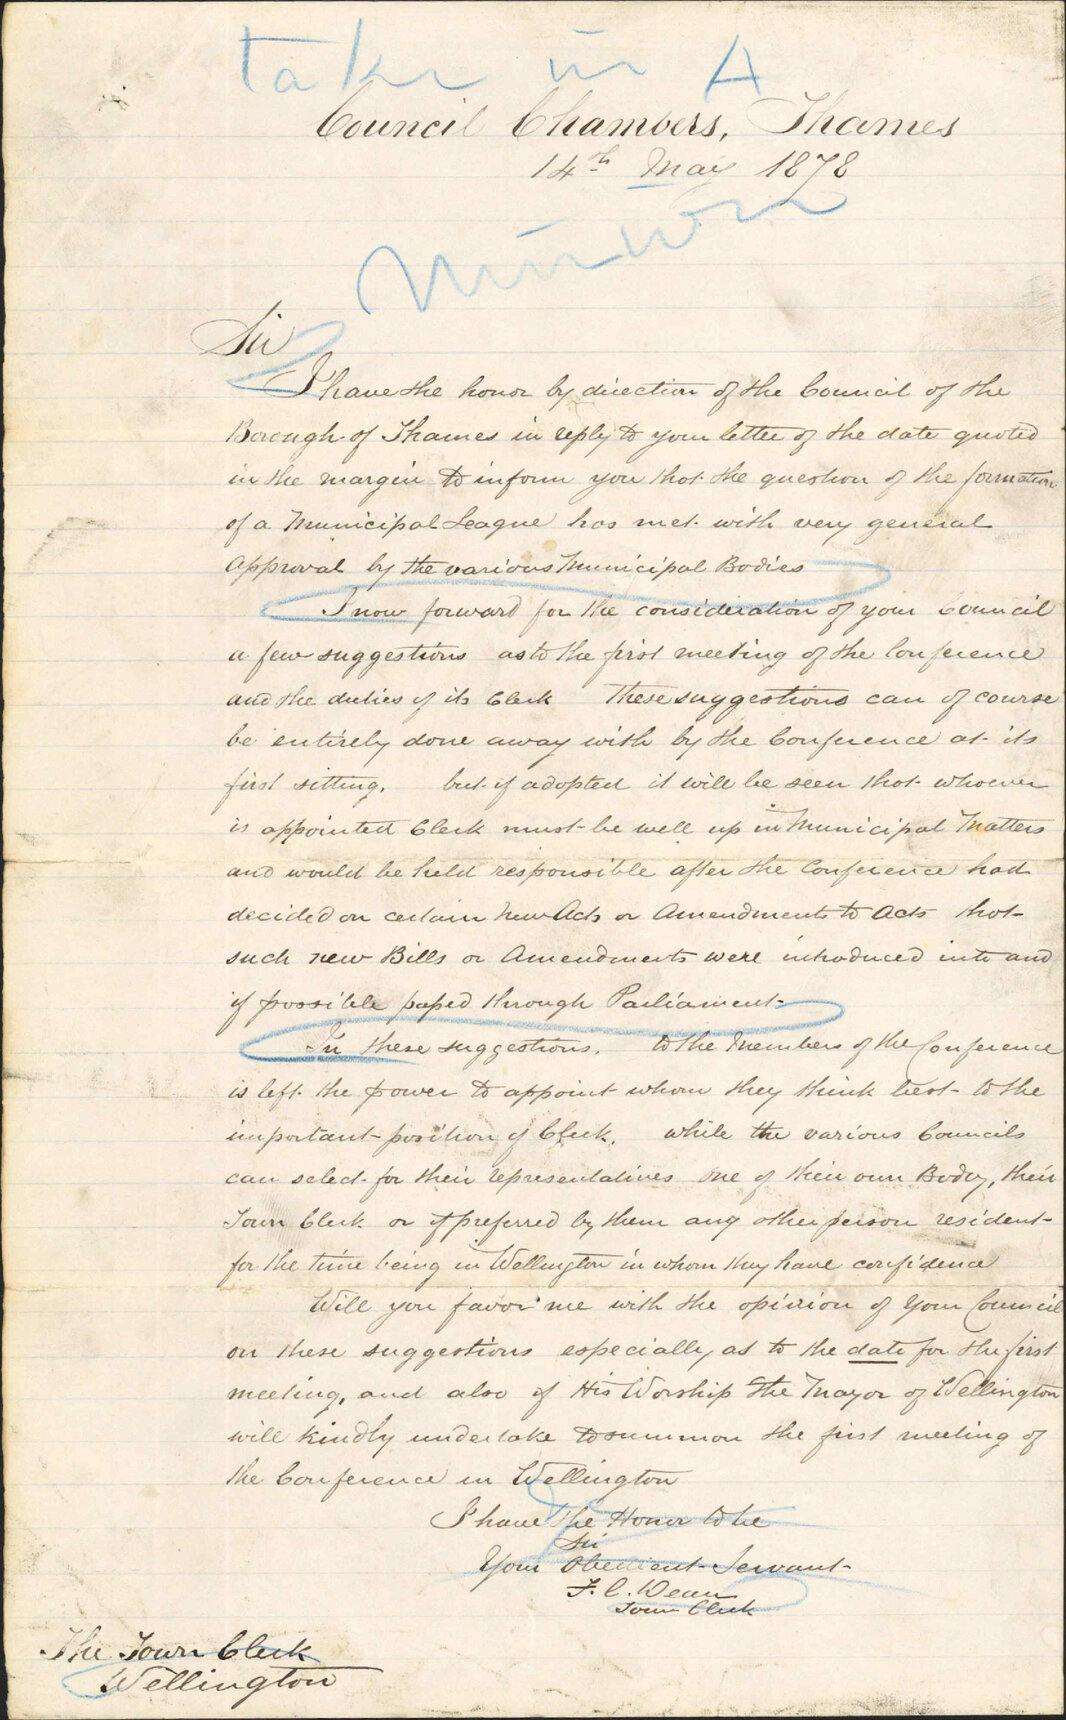 take in A
Council Chambers, Thames
14th May 1878
Sir
I have the honor by direction of the Council of the
Borough of Thames in reply to your letter of the date quoted
in the margin to inform you that the question of the formation
of a Municipal League has met with very general
approval by the various Municipal Bodies
I now forward for the consideration of your Council
a few suggestions as to the first meeting of the Conference
and the duties of its Clerk These suggestions can of course
be entirely done away with by the Conference at its
first sitting. but if adopted it will be seen that whoever
is appointed Clerk must be well up in Municipal Matters
and would be held responsible after the Conference had
decided on certain new Acts or Amendments to Acts that
such new Bills or Amendments were introduced into and
if possible passed through Parliament
In these suggestions. to the Members of the Conference
is left the power to appoint whom they think best to the
important position of Clerk. while the various Councils
can select for their representatives one of their own Body, their
Town Clerk or if preferred by them any other person resident
for the time being in Wellington in whom they have confidence
Will you favor me with the opinion of your Council
on these suggestions especially as to the date for the first
meeting, and also if His Worship the Mayor of Wellington
will kindly undertake to summon the first meeting of
the Conference in Wellington
I have the Honor to be
Sir
Your Obedient Servant
F. C. Dean
Town Clerk
The Town Clerk
Wellington